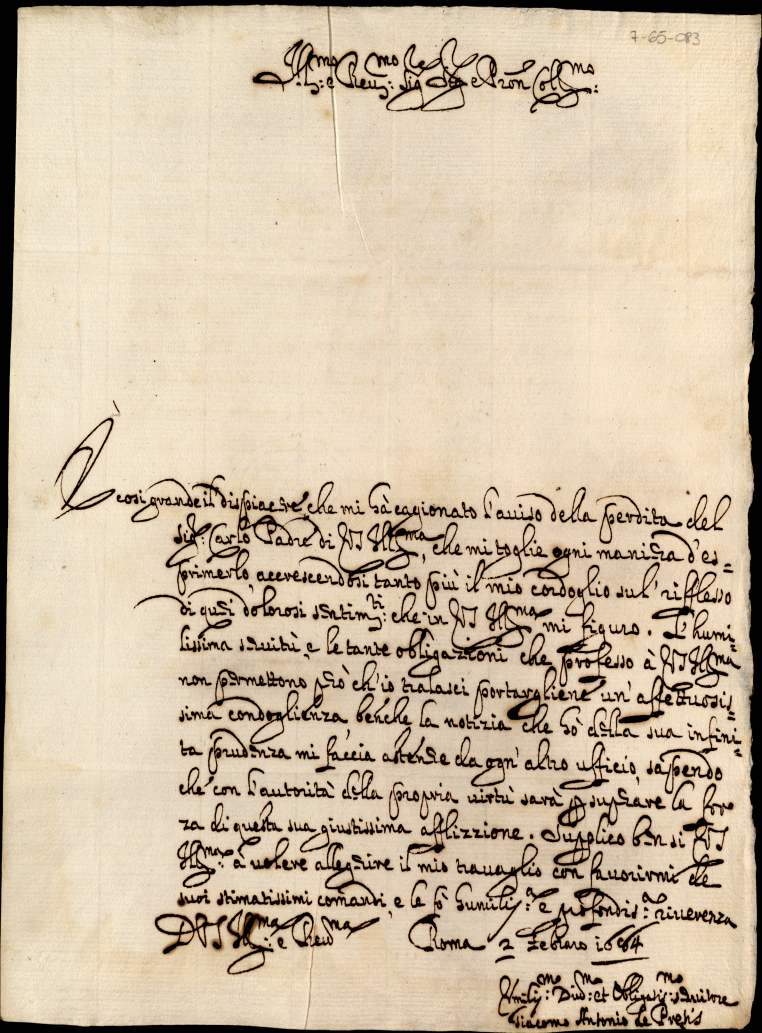 7-65-083
Ill:mo e Reu:mo Sig Sig e Pron Coll:mo
È cosi grande il dispiacere, che mi hà caggionato l'auiso della perdita del
sig:r Carlo Padre di VS Ill:ma, che mi toglie ogni maniera d'es=
primerlo, accrescendosi tanto più il mio cordoglio sul' riflesso
di quei dolorosi sentim:ti che in VS Ill:ma mi figuro. L'humi=
lissima seruitù, e le tante obligazioni che professo à VS Ill:ma
non permettono però ch'io tralasci portargliene un' affettuosis=
sima condoglienza benche la notizia che hò della sua infini=
ta prudenza mi faccia astenere da ogn' altro ufficio, sapendo
che con l'autorità della propria uirtù sarà p superare la for
za di questa sua giustissima afflizzione. Supplico ben si VS
Ill:ma à uolere alleggerire il mio trauaglio con fauorirmi de
suoi stimatissimi comandi, e le fò humiliss:a e profondiss:a riuerenza
D VS Ill:ma e Reu:ma Roma 2 Febraro 1664
Humiliss:mo Diu:mo et Obligatiss:mo seruitore
Giacomo Antonio de Pretis